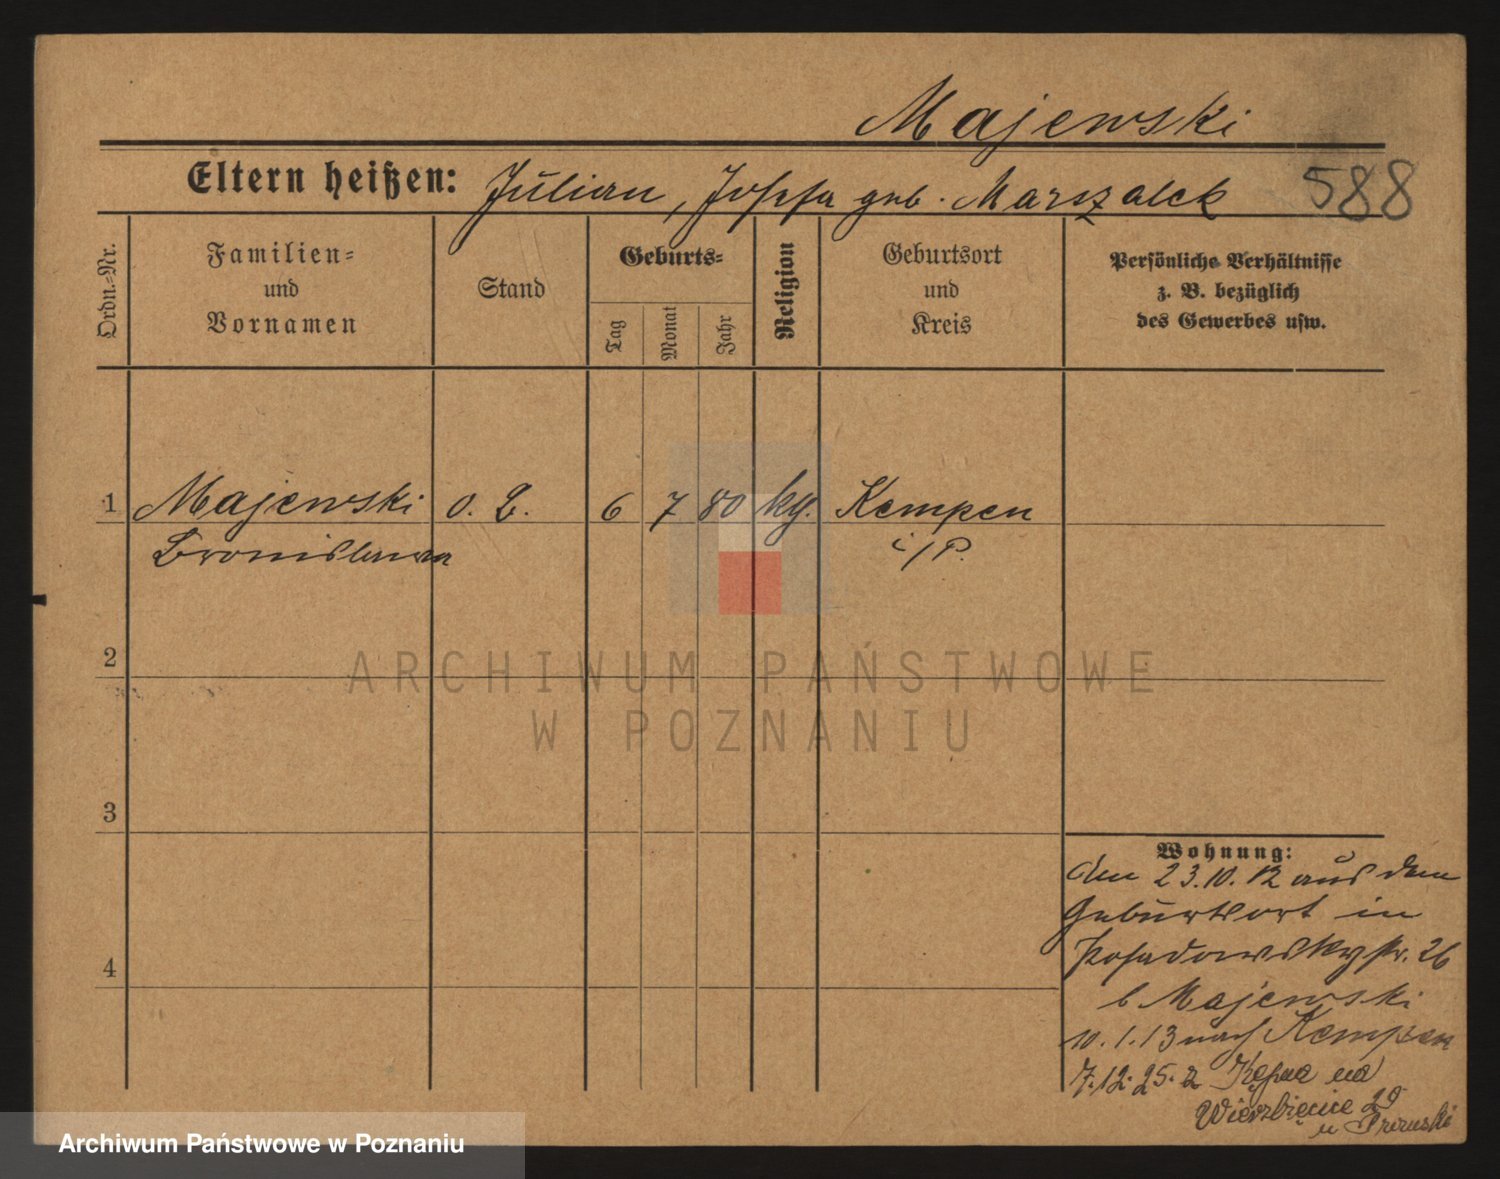 Majewski
Eltern heißen: Julian, Josefa geb. Marszalek 588
Ordn.-Nr.
Familien-
und
Vornamen
Stand
Geburts-
Tag
Monat
Jahr
Religion
Geburtsort
und
Kreis
Persönliche Verhältnisse
z. B. bezüglich
des Gewerbes usw.
1 Majewski o. B. 6 7 80 kg. Kempen
Bronislawa i/P.
2
3
4
Wohnung:
den 23.10.12 aus dem
Geburtsort in
Posadowskystr. 26
b Majewski
10.1.13 nach Kempen
7.12.25. z Kępna na
Wierzbięcice 29
u
ARCHIWUM PAŃSTWOWE
W POZNANIU
Archiwum Państwowe w Poznaniu